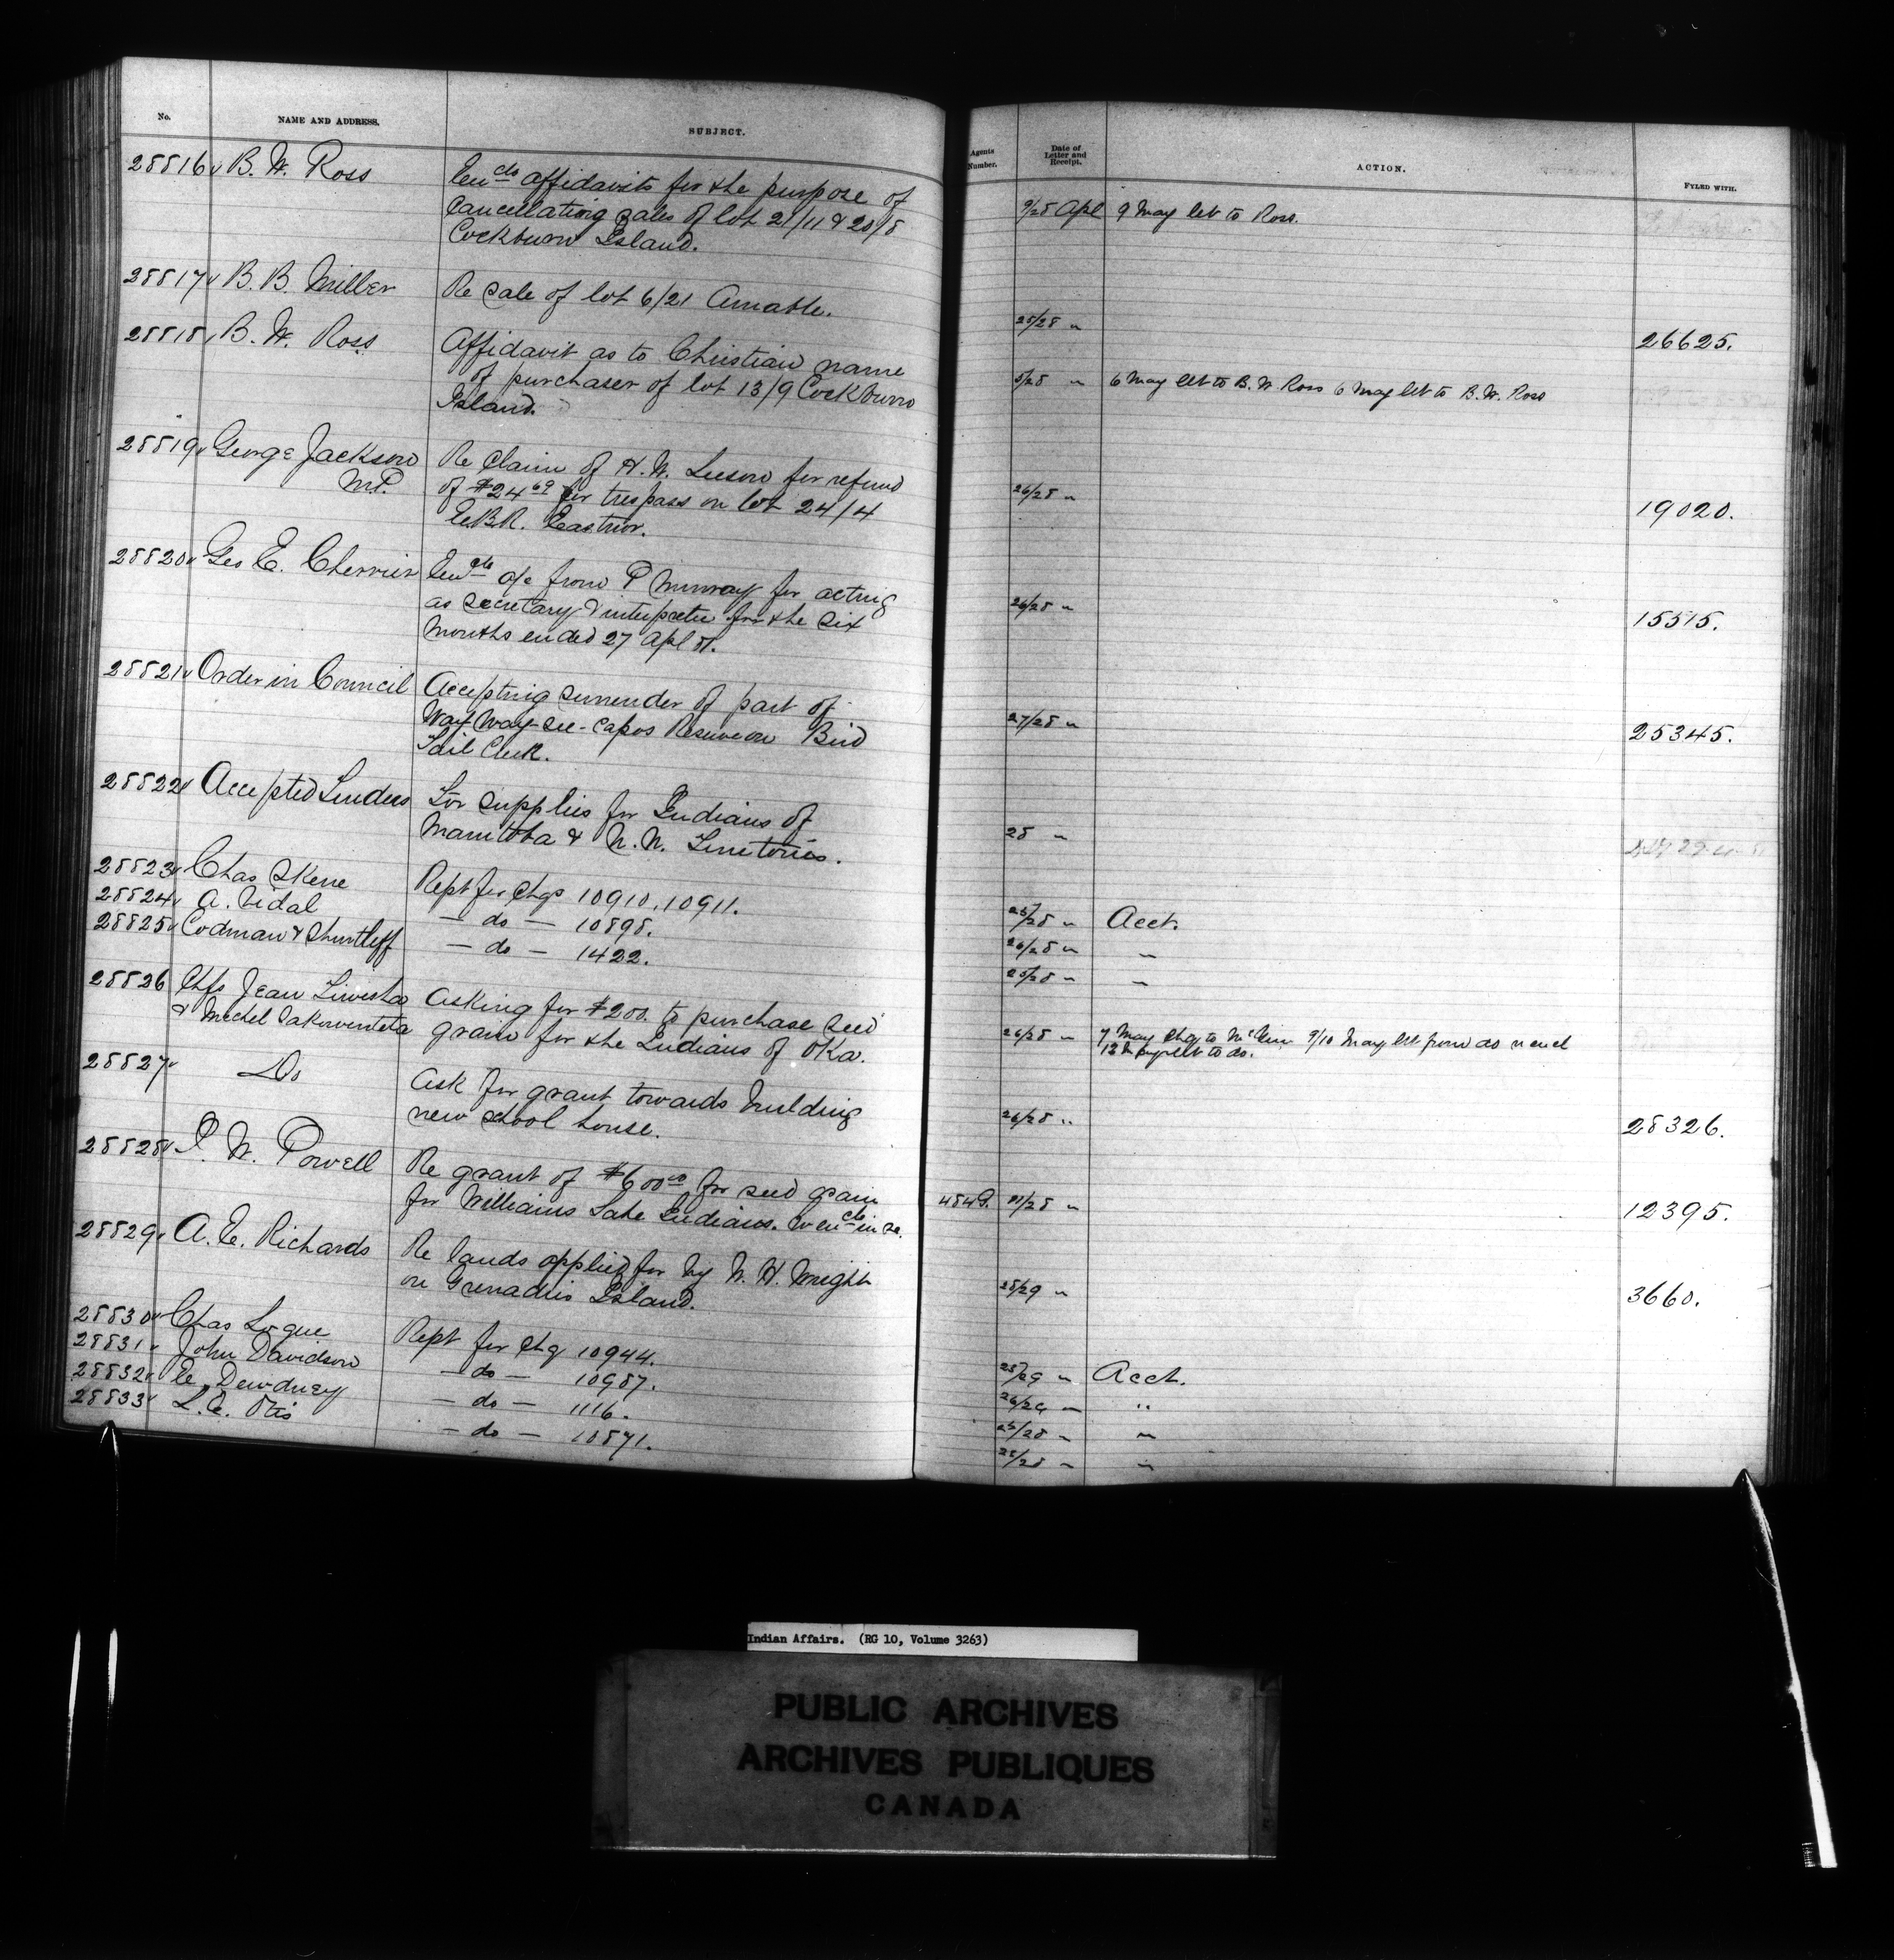 No. NAME AND ADDRESS. SUBJECT. Agents Number. Date of Letter and Receipt. ACTION. FYLED WITH.
28816 B. W. Ross Encls affidavits for the purpose of
cancellating sales of lot 21/11 & 20/8 9/28 Apl 9 May let to Ross.
Cockburn Island.
28817 B. B. Miller Re sale of lot 6/21 Amable. 25/28 " 26625.
28818 B. W. Ross Affidavit as to Christian name
of purchaser of lot 13/9 Cockburn 5/28 " 6 May let to B. W. Ross 6 May let to B. W. Ross
Island.
28819 George Jackson Re claim of H. W. for refund
M.P. of $24 69 for trespass on lot 24/4 26/28 " 19020.
E.B.R. Eastnor.
28820 Geo E. Cherrier Encls a/c from P Murray for acting
as secretary & interpreter for the six 26/28 " 15515.
months ended 27 Apl 81.
28821 Order in Council Accepting surrender of part of
Way-Way-see-capos Reserve on Bird 27/28 " 25345.
Tail Creek.
28822 Accepted Tenders For supplies for Indians of
Manitoba & N. W. Territories. 28 "
28823 Chas Skene Rept for Chqs 10910, 10911. 25/28 " Acct.
28824 A. Vidal — do — 10898. 26/28 " "
28825 Codman & Shurtleff — do — 1422. 25/28 " "
28826 Chfs Jean
& Michel Asking for $200. to purchase seed
grain for the Indians of Oka. 26/28 " 7 May chq to 9/10 May let from do
12 May let to do.
28827 Do Ask for grant towards building
new school house. 26/28 " 28326.
28828 I. W. Powell Re grant of $600 00 for seed grain
for Williams Lake Indians. 484G. 11/28 " 12395.
28829 A. E. Richards Re lands applied for by W. H. Wright
on Grenadier Island. 28/29 " 3660.
28830 Chas Logue Rept for chq 10944. 28/29 " Acct.
28831 John Davidson — do — 10987. 26/29 " "
28832 E. Dewdney — do — 1116. 25/28 " "
28833 L. E. Otis — do — 10871. 25/28 " "
Indian Affairs. (RG 10, Volume 3263)
PUBLIC ARCHIVES
ARCHIVES PUBLIQUES
CANADA